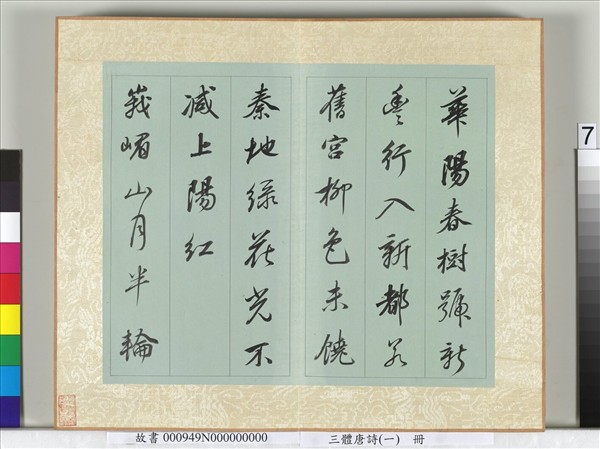 華陽春樹號新
豐行入新都若
舊宮柳色未饒
秦地綠花光不
減上陽紅
峩嵋山月半輪
故書 000949N000000000
三體唐詩(一) 冊
7